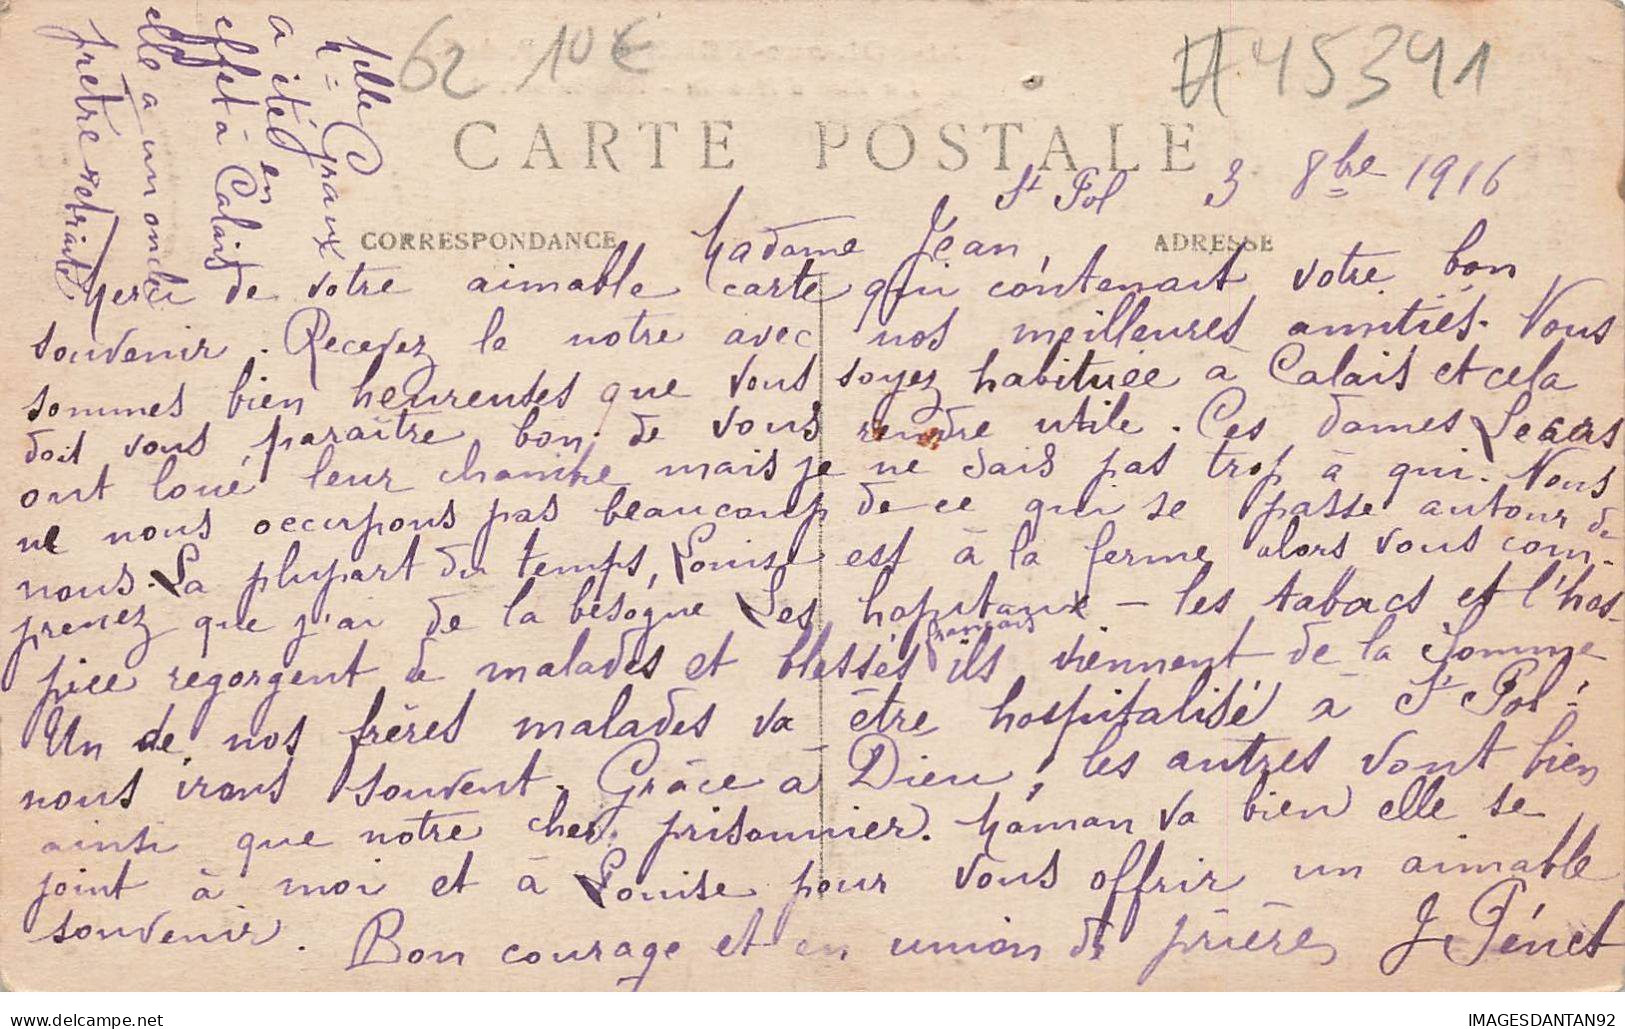 62 10€ #45391
CARTE POSTALE
St Pol 3 8bre 1916
CORRESPONDANCE
ADRESSE
Madame Jean,
Merci de votre aimable carte qui contenait votre bon
souvenir. Recevez le notre avec nos meilleures amitiés. Nous
sommes bien heureuses que vous soyez habituée à Calais et cela
doit vous paraître bon de vous rendre utile. Ces dames
ont loué leur chambre mais je ne sais pas trop à qui. Nous
ne nous occupons pas beaucoup de ce qui se passe autour de
nous. La plupart du temps, Louise est à la ferme alors vous com-
prenez que j'ai de la besogne Les hopitaux – les tabacs et l'hos-
pice regorgent de malades et blessés français ils viennent de la Somme
Un de nos frères malades va être hospitalisé à St Pol:
nous irons souvent. Grâce à Dieu, les autres vont bien
ainsi que notre cher prisonnier. Maman va bien elle se
joint à moi et à Louise pour vous offrir un aimable
souvenir. Bon courage et en union de prières J. Pénet
Mlle
M= Graux
a été en
effet à Calais
elle a un oncle
prêtre retraité
IMAGESDANTAN92